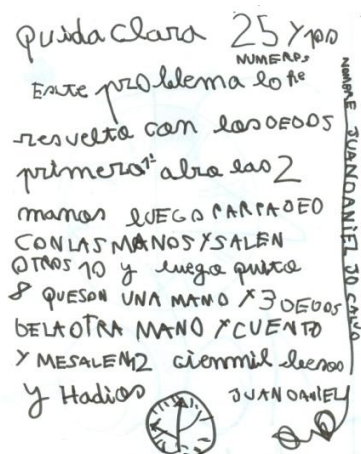 Quida Clara 25 Y 100
NUMEROS
Este problema lo he
resvelto con los DEDOS
primero 1º abro las 2
manos LUEGO PARPADEO
CON LAS MANOS Y SALEN
OTROS 10 y luego quito
8 QUE SON UNA MANO Y 3 DEDOS
DE LA OTRA MANO Y CUENTO
Y ME SALEN 12 cienmil besos
y Hadios JUAN DANIEL
NOMBRE JUAN DANIEL JD CALVO